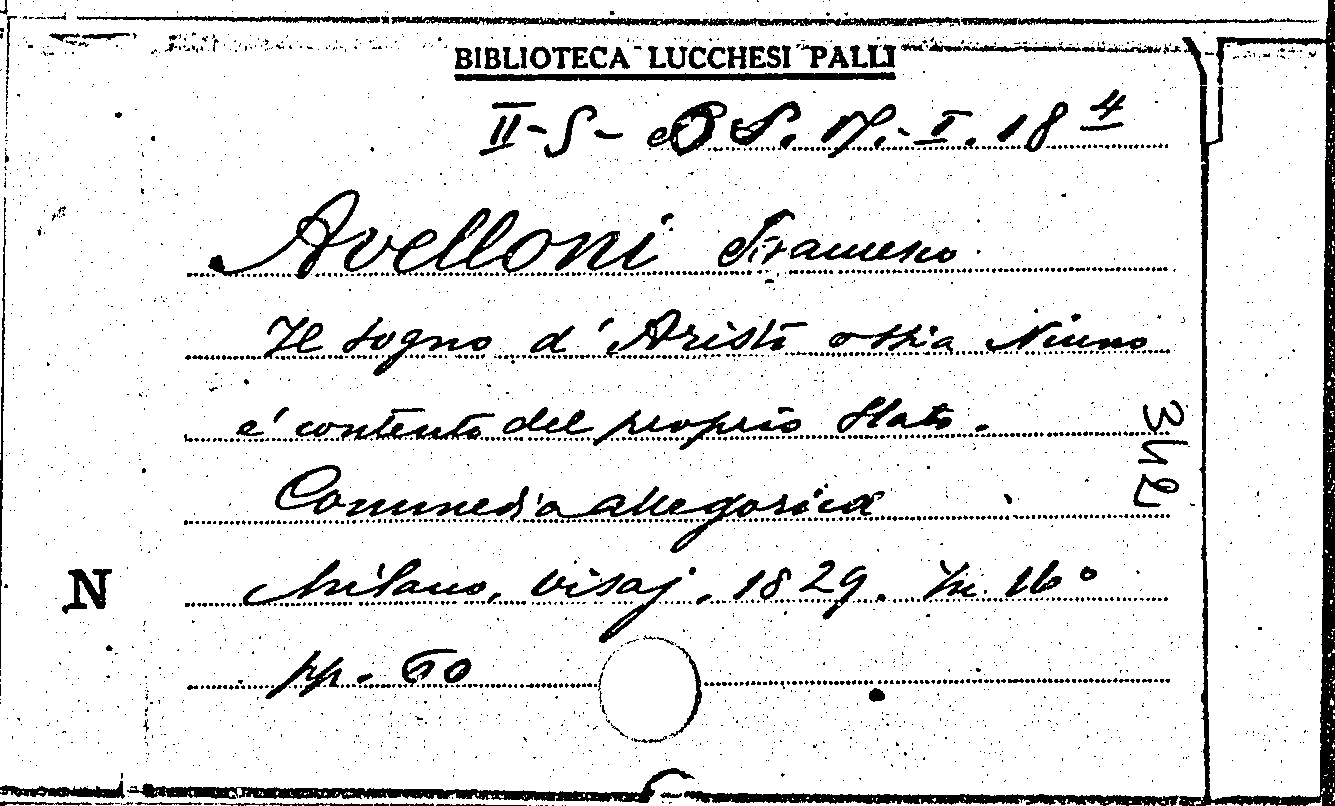 BIBLIOTECA LUCCHESI PALLI
II-S- BS. 17.-I. 18 4
Avelloni Francesco
Il sogno d'Aristo ossia Niuno
e' contento del proprio Stato.
Commedia allegorica
Milano, Visaj, 1829. In 16°
N
pp. 60
342